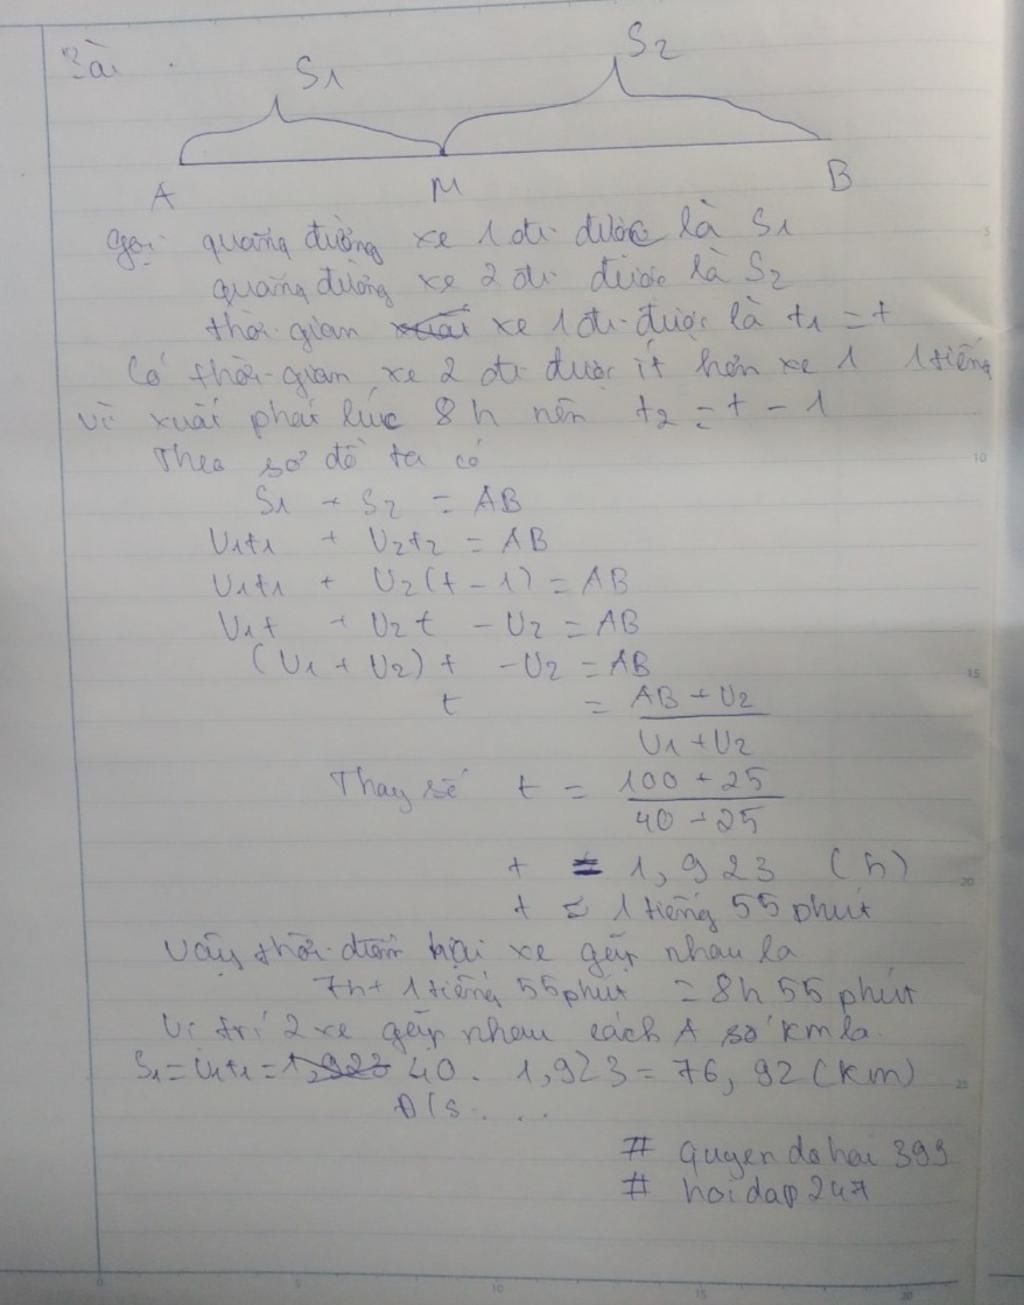 Bài
S1
S2
A
M
B
Gọi quãng đường xe 1 đi được là S1
quãng đường xe 2 đi được là S2
thời gian xe 1 đi được là t1 = t
Có thời gian xe 2 đi được ít hơn xe 1 1 tiếng
vì xuất phát lúc 8h nên t2 = t - 1
Theo sơ đồ ta có
S1 + S2 = AB
V1t1 + V2t2 = AB
V1t1 + V2(t - 1) = AB
V1t + V2t - V2 = AB
(V1 + V2) t - V2 = AB
t = (AB + V2) / (V1 + V2)
Thay số t = (100 + 25) / (40 + 25)
t = 1,923 (h)
t ≈ 1 tiếng 55 phút
Vậy thời điểm hai xe gặp nhau là
7h + 1 tiếng 55 phút = 8h 55 phút
Vị trí 2 xe gặp nhau cách A số km là
S1 = V1t1 = 40 . 1,923 = 76,92 (km)
Đ/s . . .
# quyendohai 399
# hoidap247